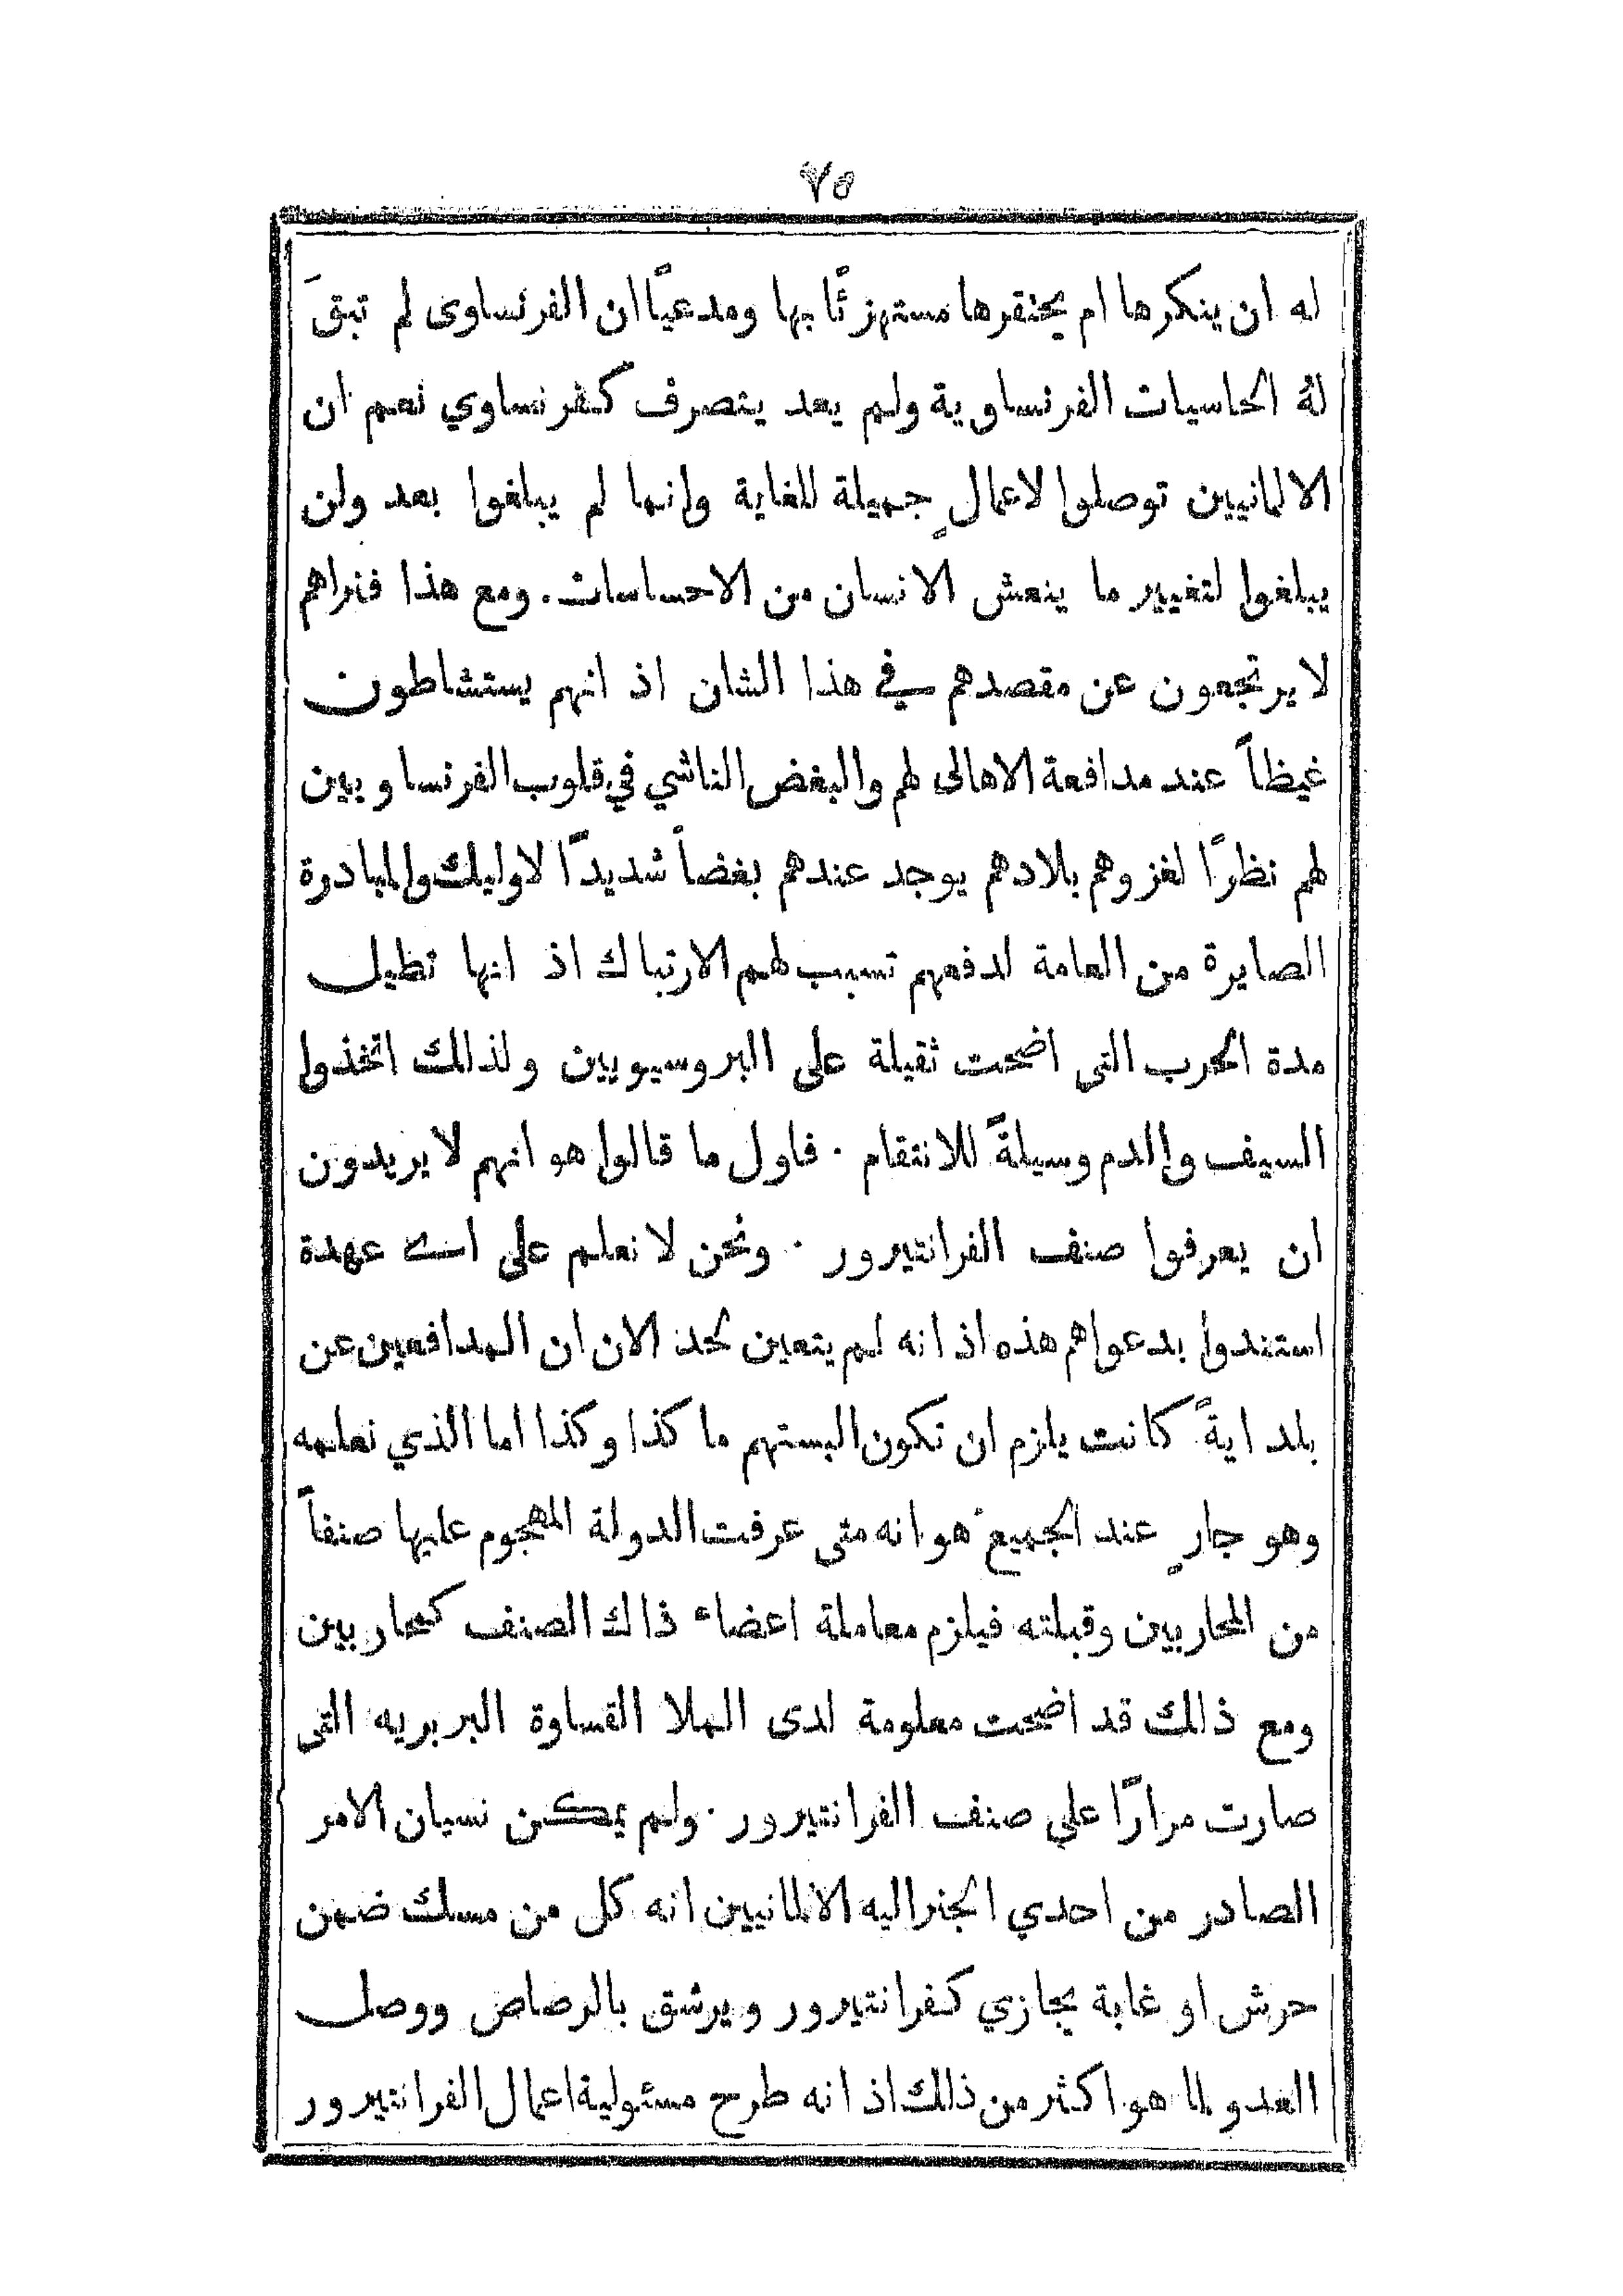 ٧٥
له ان ينكرها ام يحتقرها مستهزئًا بها ومدعيًا ان الفرنساوى لم تبقَ
لهُ الحاسيات الفرنساوية ولم يعد يتصرف كفرنساوي نعم ان
الالمانيين توصلوا لاعمالٍ جميلة للغاية وانما لم يبلغوا بعد ولن
يبلغوا لتغيير ما ينعش الانسان من الاحساسات. ومع هذا فنراهم
لا يرتجعون عن مقصدهم في هذا الشان اذ انهم يستشاطون
غيظاً عند مدافعة الاهالى لهم والبغض الناشي في قلوب الفرنساويين
لهم نظرًا لغزوهم بلادهم يوجد عندهم بغضاً شديدًا لاوليك والمبادرة
الصايرة من العامة لدفعهم تسبب لهم الارتباك اذ انها تطيل
مدة الحرب التى اضحت ثقيلة على البروسيويين ولذلك اتخذوا
السيف والدم وسيلةً للانتقام . فاول ما قالوا هو انهم لا يريدون
ان يعرفوا صنف الفرانتيرور . ونحن لا نعلم على اي عهدة
استندوا بدعواهم هذه اذ انه لم يتعين لحد الان ان المدافعين عن
بلد ايةً كانت يلزم ان تكون البستهم ما كذا وكذا اما الذي نعلمه
وهو جارٍ عند الجميع هو انه متى عرفت الدولة المهجوم عليها صنفاً
من المحاربين وقبلته فيلزم معاملة اعضاء ذاك الصنف كمحاربين
ومع ذلك قد اضحت معلومة لدى الملا القساوة البربريه التى
صارت مرارًا علي صنف الفرانتيرور . ولم يمكن نسيان الامر
الصادر من احدي الجنراليه الالمانيين انه كل من مسك ضمن
حرش او غابة يجازي كفرانتيرور ويرشق بالرصاص ووصل
العدو لما هو اكثر من ذلك اذ انه طرح مسئولية اعمال الفرانتيرور